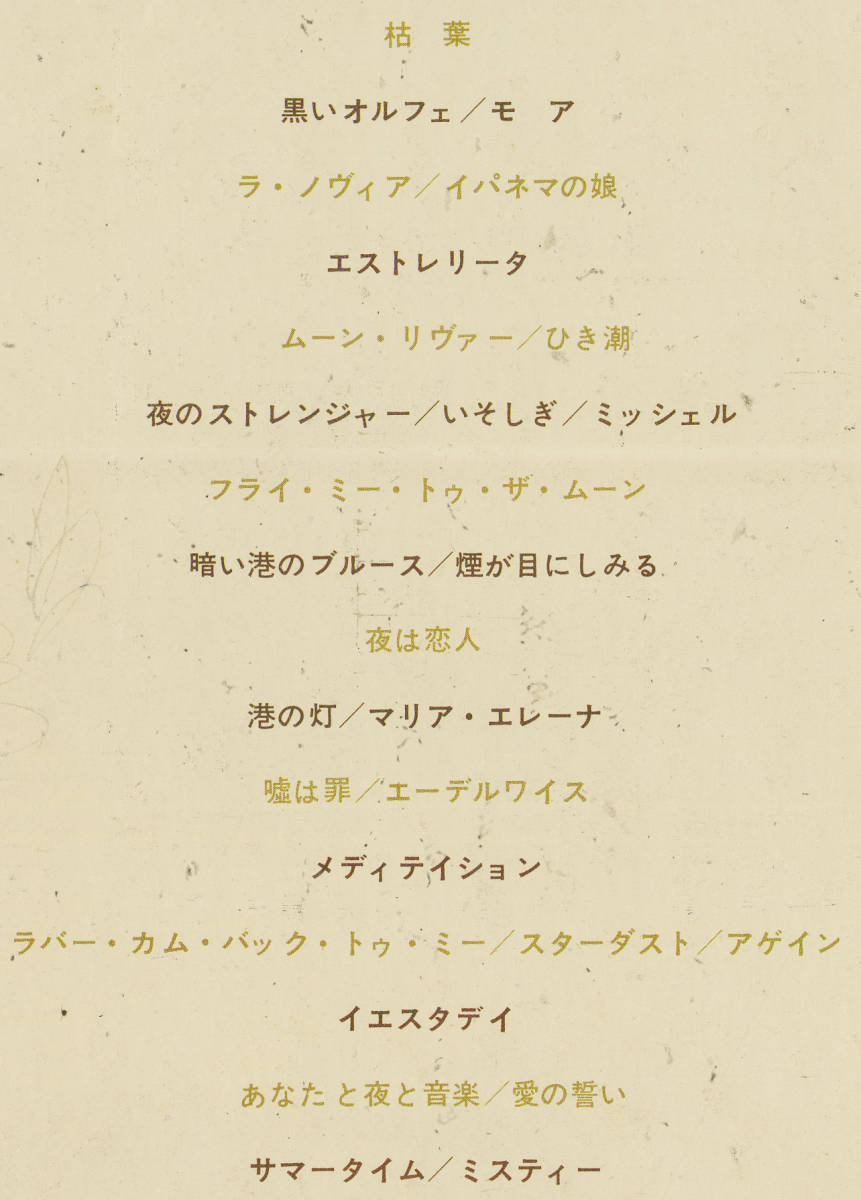 枯　葉
黒いオルフェ／モ　ア
ラ・ノヴィア／イパネマの娘
エストレリータ
ムーン・リヴァー／ひき潮
夜のストレンジャー／いそしぎ／ミッシェル
フライ・ミー・トゥ・ザ・ムーン
暗い港のブルース／煙が目にしみる
夜は恋人
港の灯／マリア・エレーナ
嘘は罪／エーデルワイス
メディテイション
ラバー・カム・バック・トゥ・ミー／スターダスト／アゲイン
イエスタデイ
あなたと夜と音楽／愛の誓い
サマータイム／ミスティー